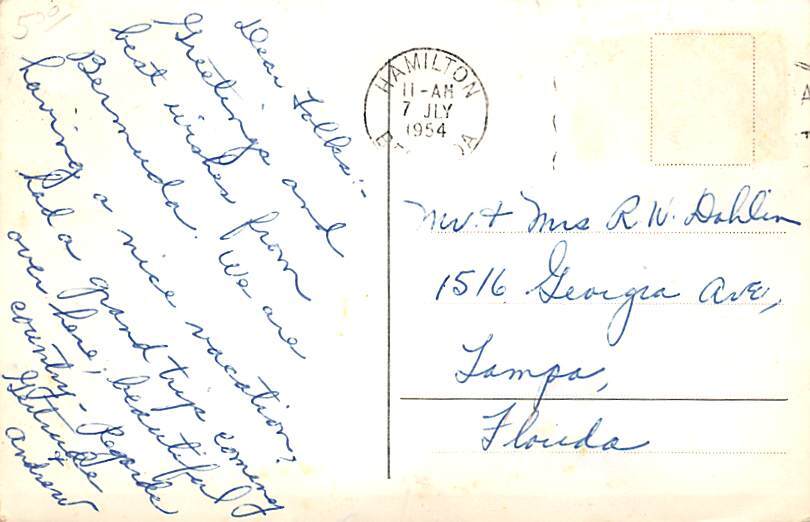 50
Dear Folks:-
Greetings and
best wishes from
Bermuda. We are
having a nice vacation;
had a grand trip coming
over here; beautiful
country - Regards
Gertrude
+
Andrew
HAMILTON
11-AM
7 JLY
1954
Mr. + Mrs R.W. Dahlin
1516 Georgia Ave,
Tampa,
Florida